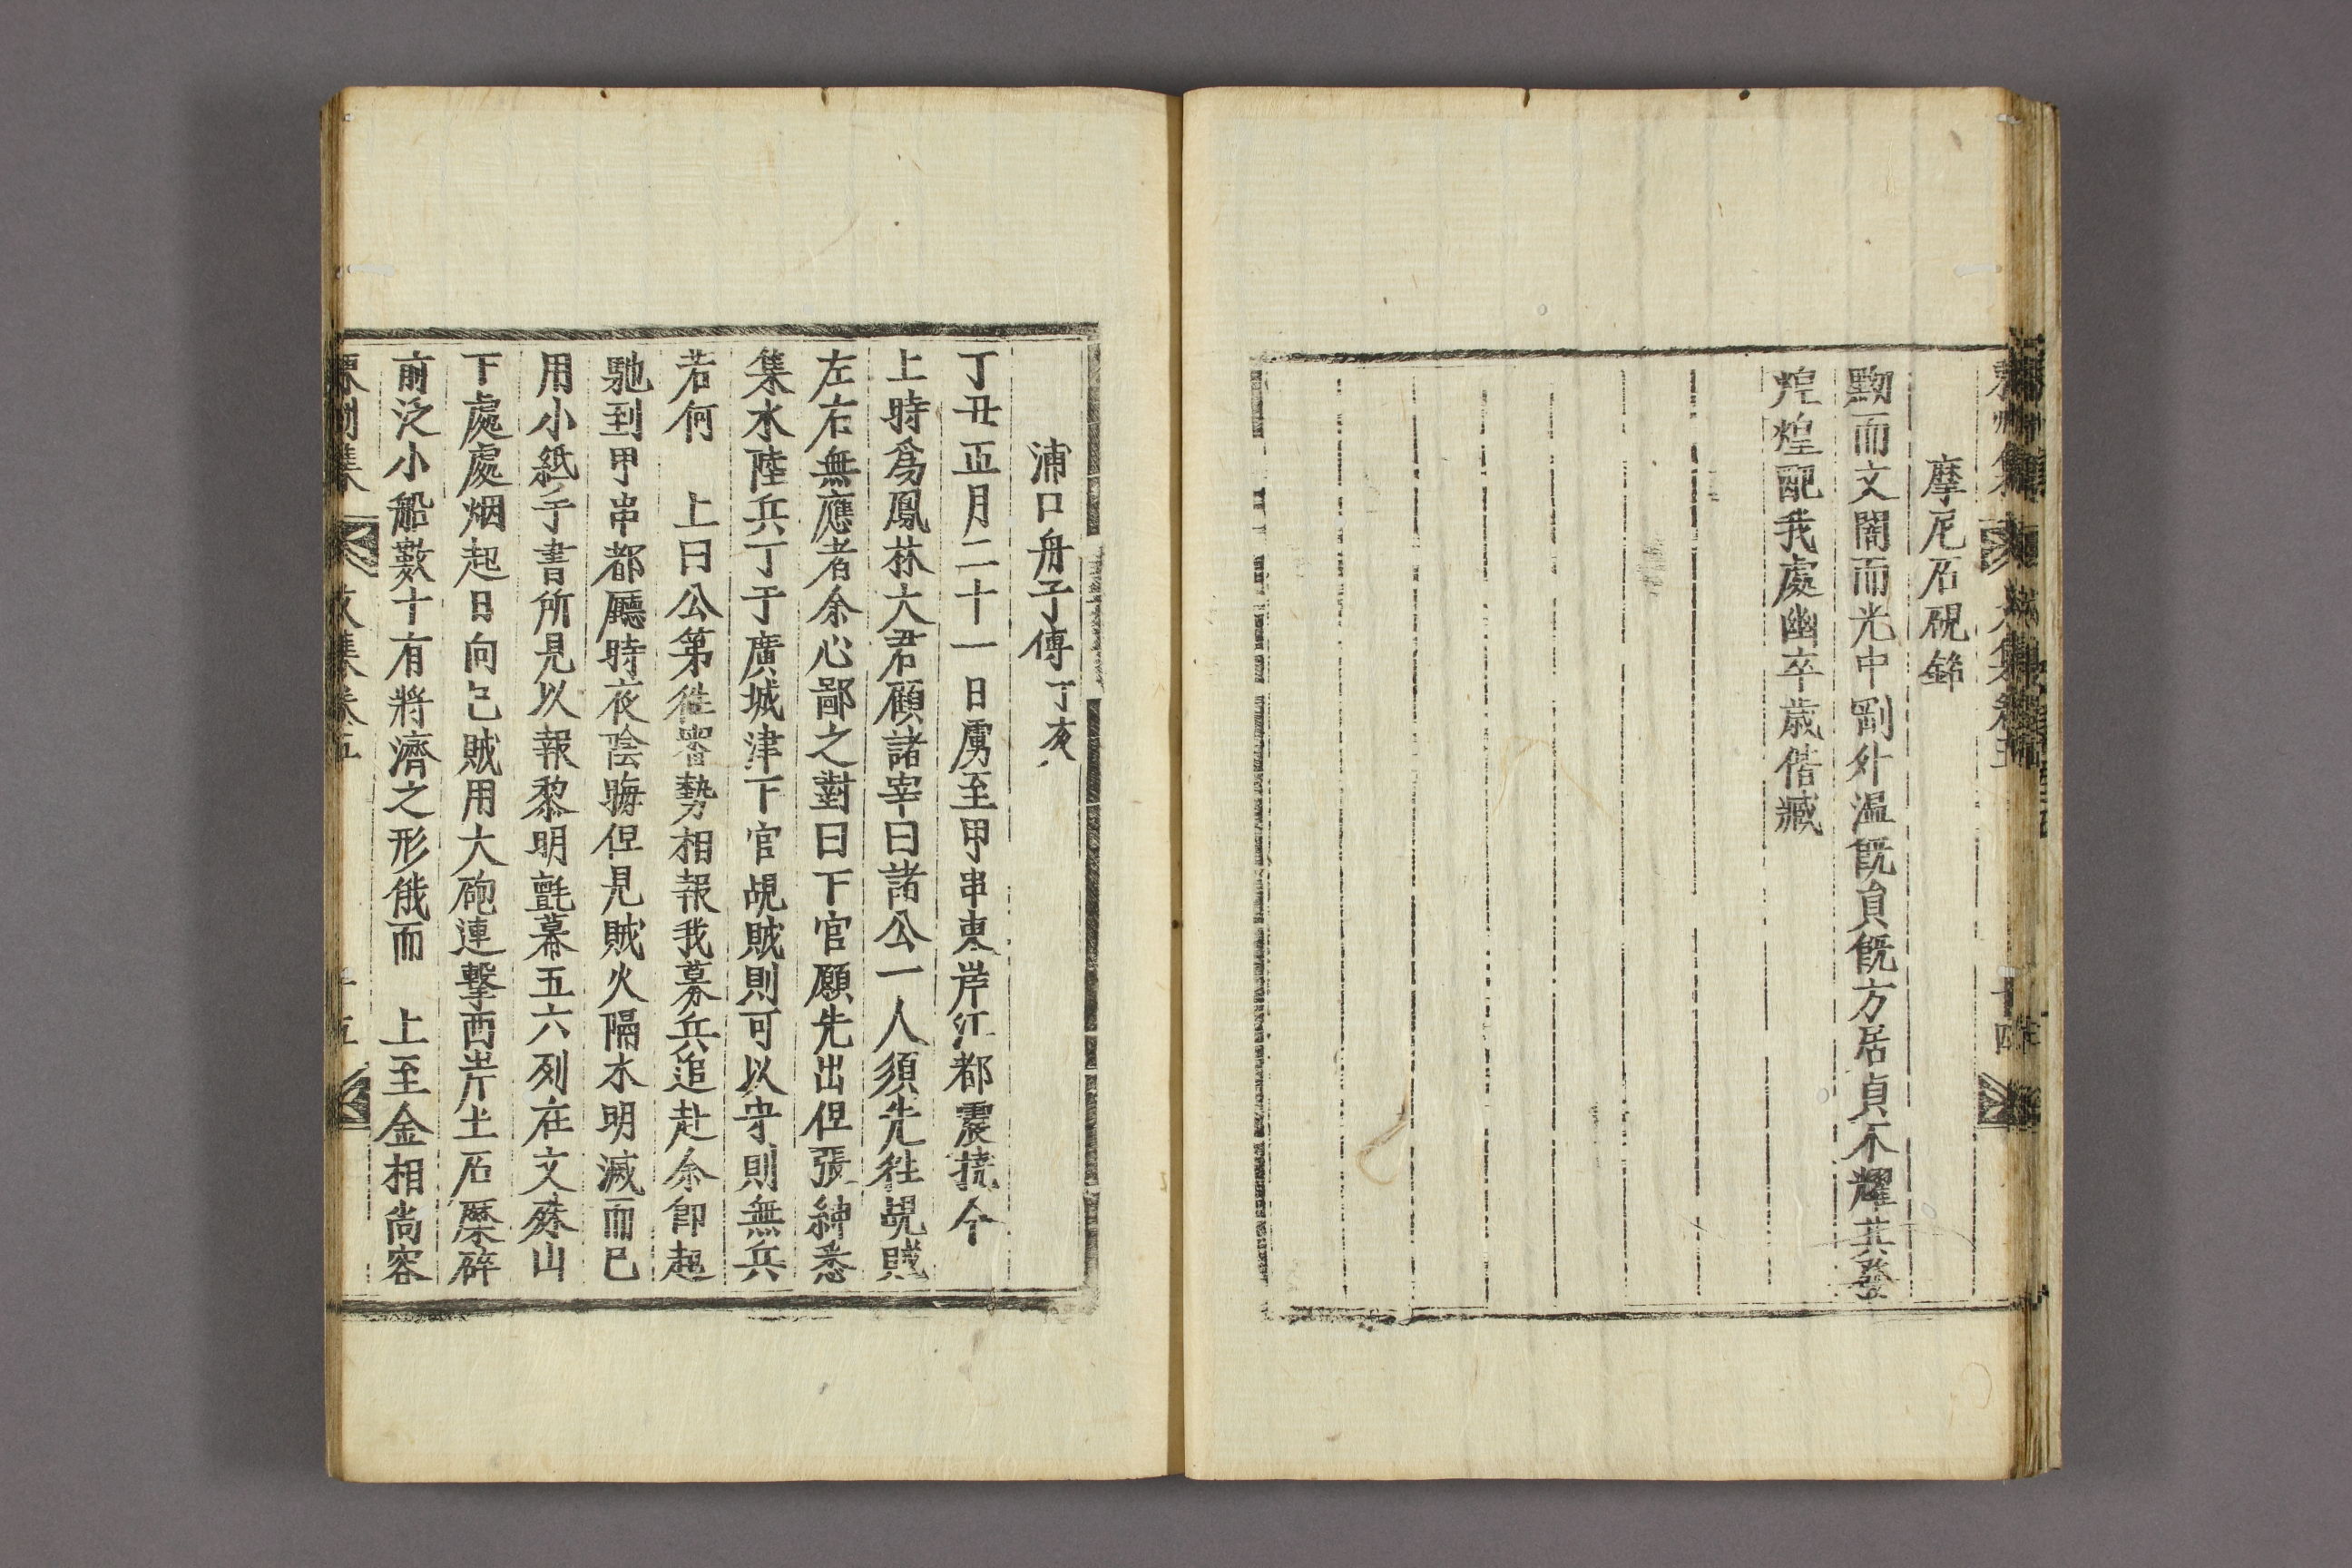 摩尼石硯銘
黝而文闇而光中剛外溫旣貟旣方居貞不耀其發
炷煌配我處幽卒歲偕藏
浦口舟子傳 丁亥
丁丑正月二十一日虜至甲串東岸江都震擾今
上時爲鳳林大君顧諸宰曰諸公一人須先徃覘賊
左右無應者余心鄙之對曰下官願先出但張紳悉
集水陸兵丁于廣城津下官覘賊則可以守則無兵
若何 上曰公第徃審勢相報我募兵追赴余卽起
馳到甲串都廳時夜陰晦但見賊火隔水明滅而已
用小紙手書所見以報黎明氈幕五六列在文殊山
下處處烟起日向巳賊用大砲連擊西岸土石糜碎
前泛小船數十有將濟之形俄而 上至金相尚容
文集卷五